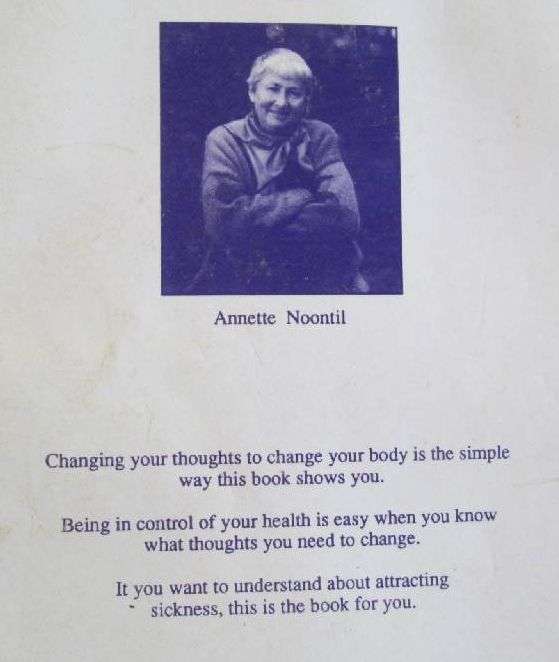 Annette Noontil
Changing your thoughts to change your body is the simple
way this book shows you.
Being in control of your health is easy when you know
what thoughts you need to change.
It you want to understand about attracting
sickness, this is the book for you.